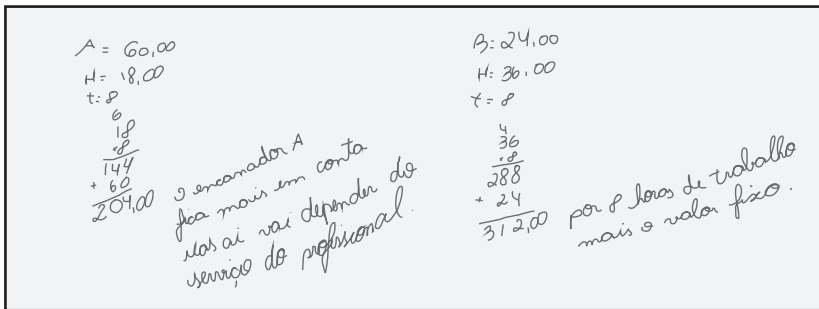 A = 60,00
H = 18,00
t: 8
6
18
.8
144
+ 60
204,00
o encanador A
fica mais em conta
mas ai vai depender do
serviço do profissional.
B: 24,00
H: 36,00
t = 8
4
36
.8
288
+ 24
312,00
por 8 horas de trabalho
mais o valor fixo.